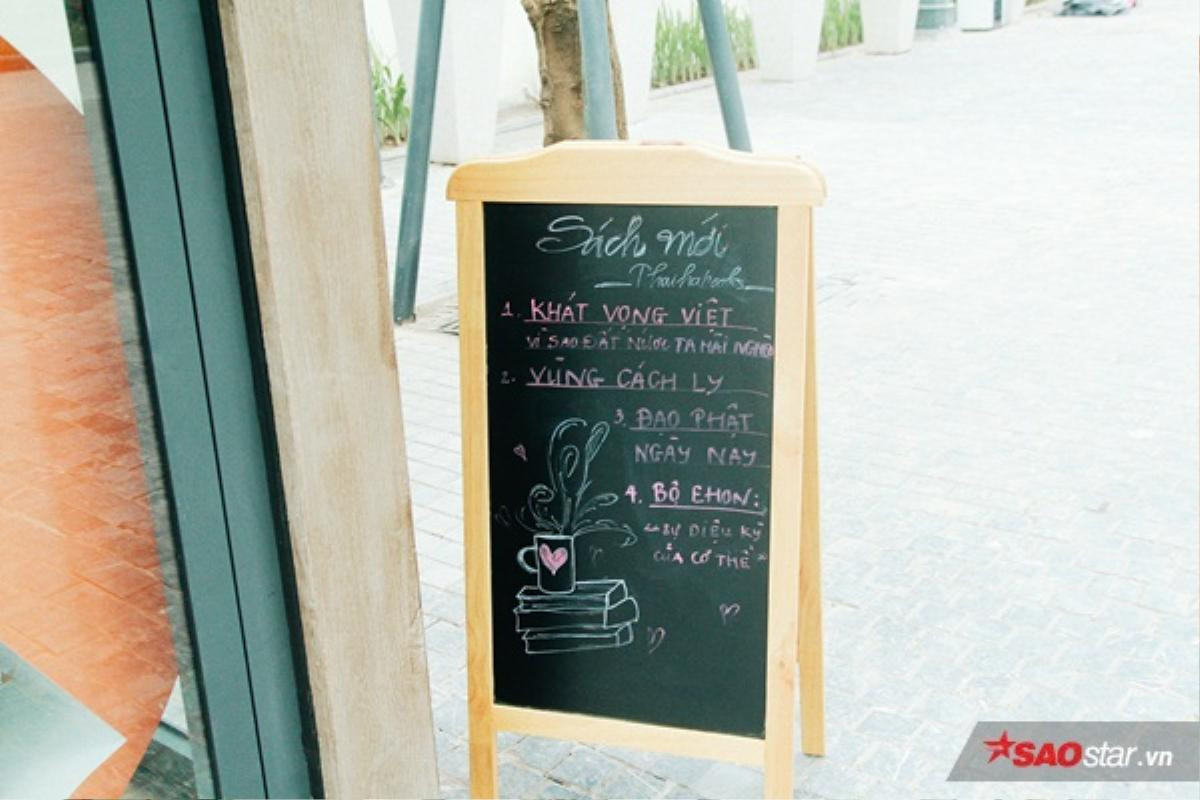 Sách mới
Thaihabooks
1. KHÁT VỌNG VIỆT
VÌ SAO ĐẤT NƯỚC TA MÃI NGHÈO
2. VÙNG CÁCH LY
3. ĐẠO PHẬT
NGÀY NAY
4. BỘ EHON:
"SỰ DIỆU KỲ
CỦA CƠ THỂ"
SAOstar.vn